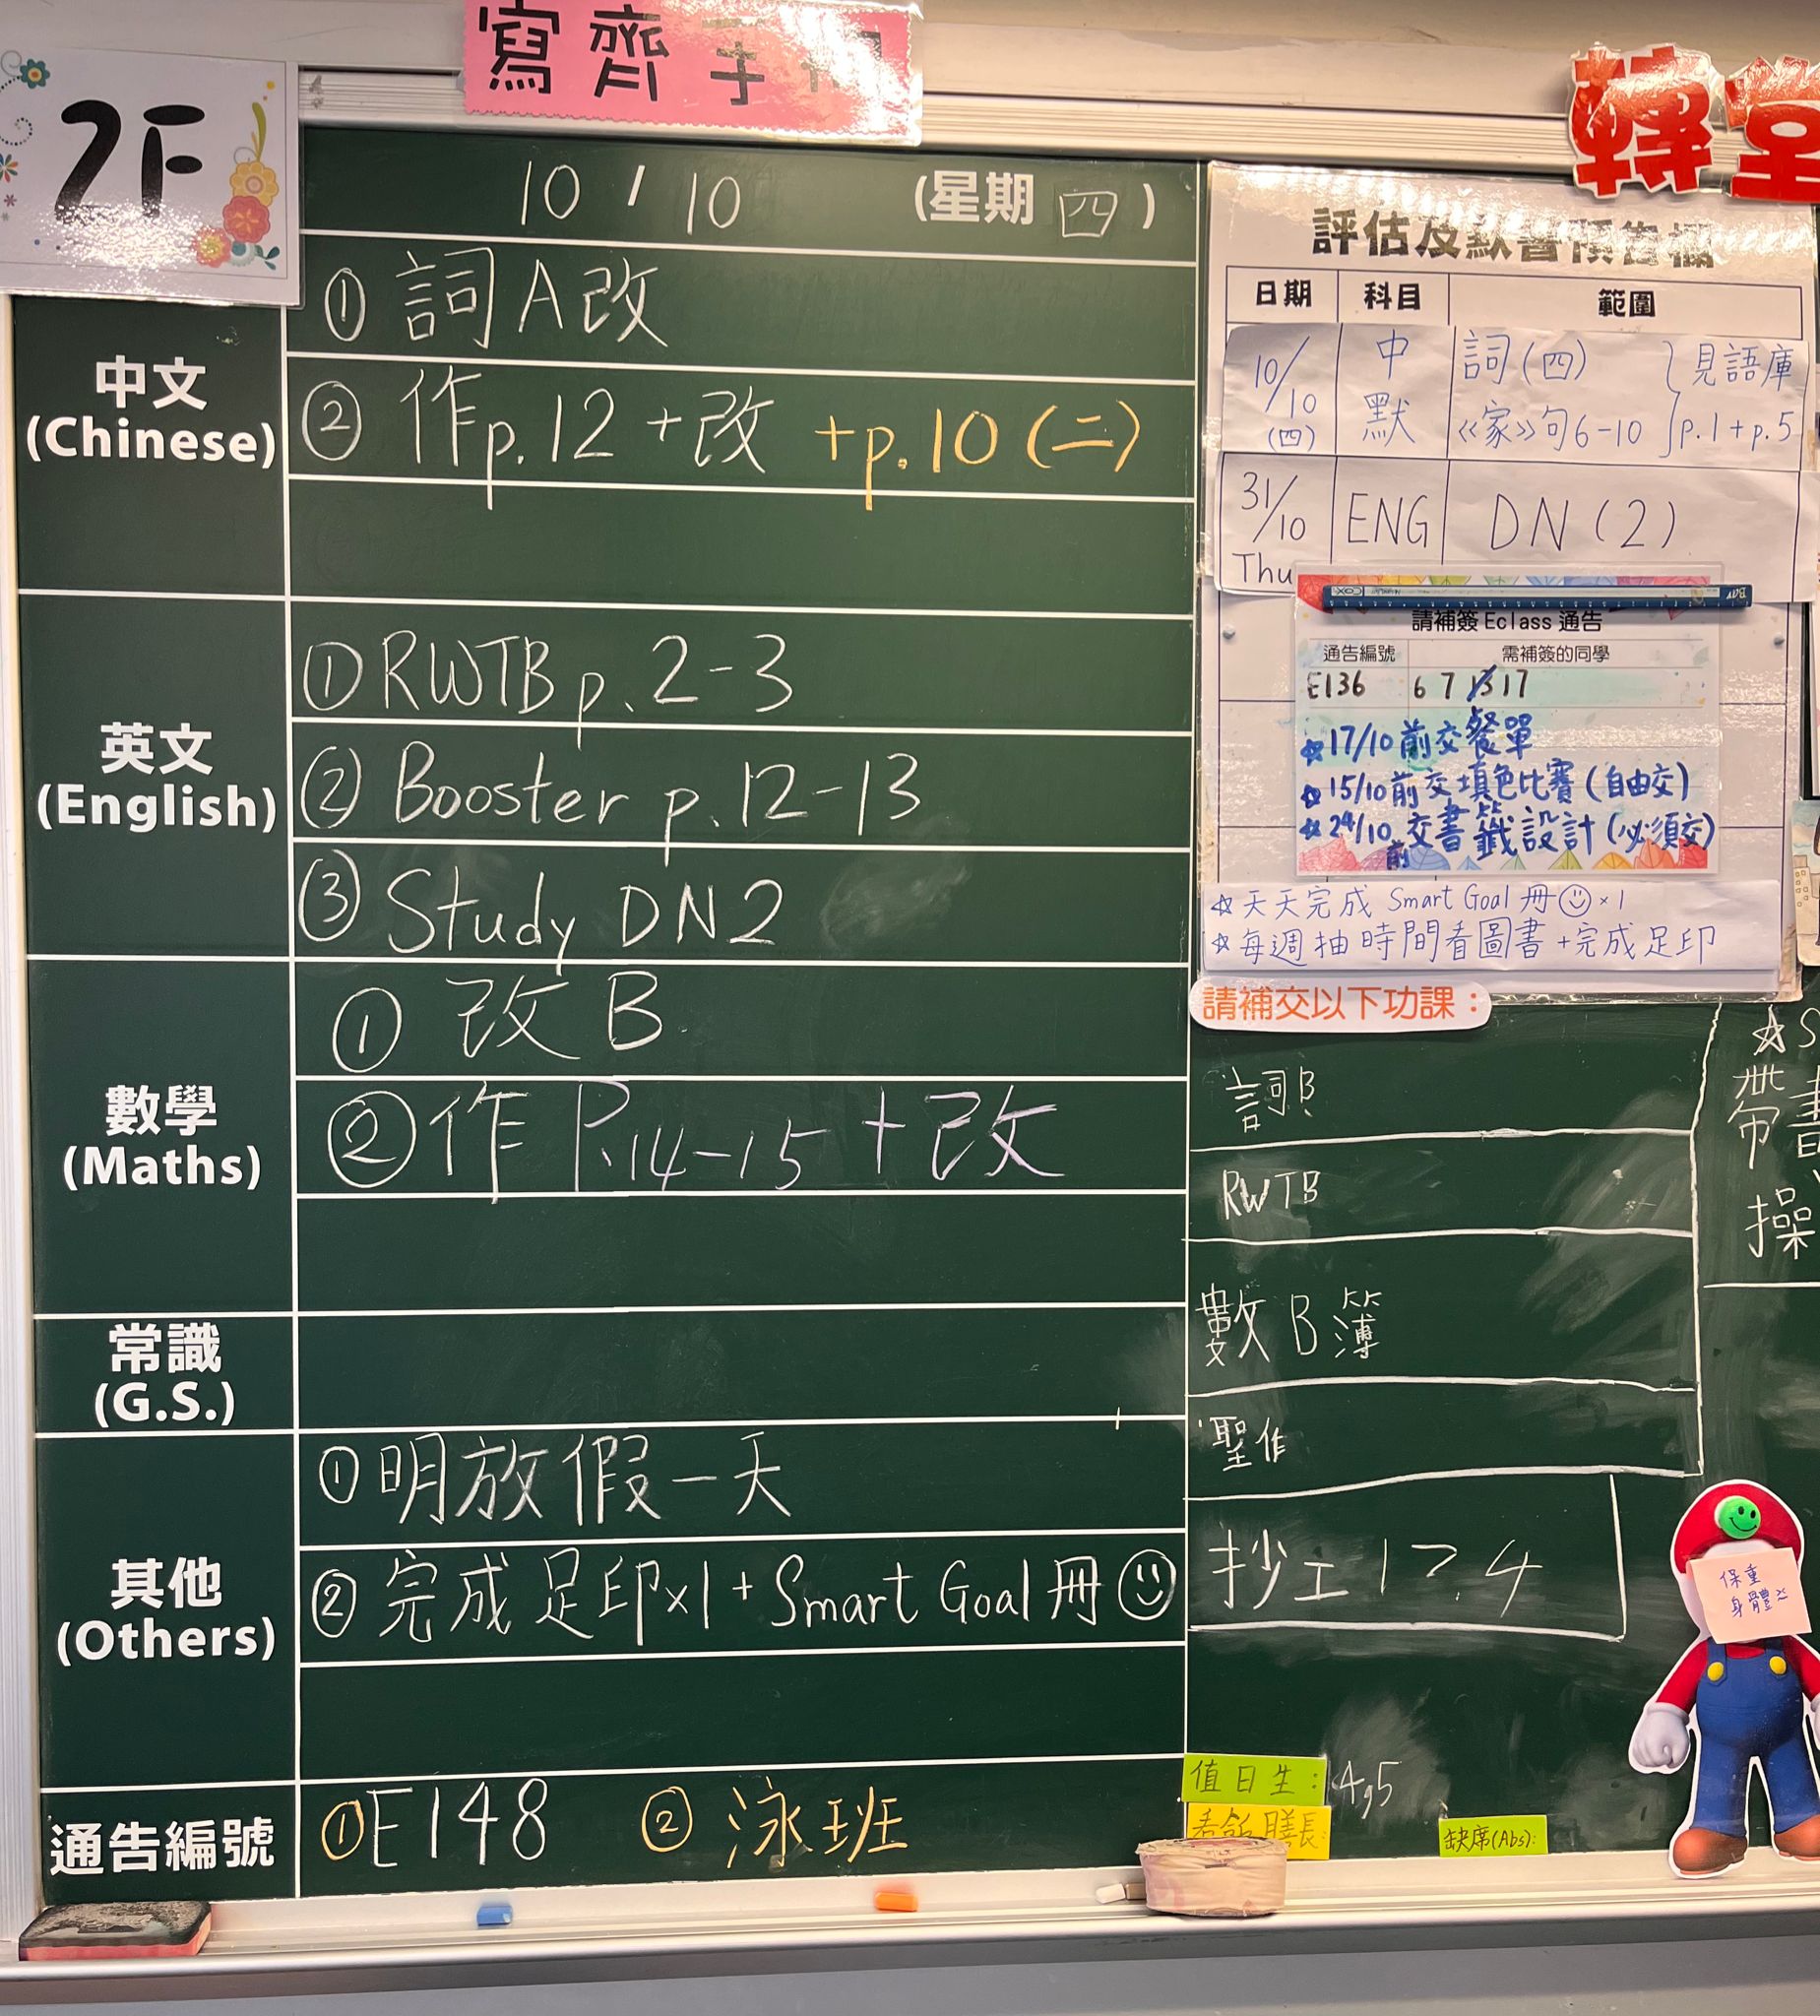 寫齊手
2F
10 / 10 (星期 四 )
中文
(Chinese)
① 詞A改
② 作p.12 +改 +p.10 (二)
英文
(English)
① RWTB p. 2-3
② Booster p. 12-13
③ Study DN2
數學
(Maths)
① 改 B
② 作 P.14-15 + 改
常識
(G.S.)
其他
(Others)
① 明放假一天
② 完成足印x1 + Smart Goal 冊
通告編號
① E148 ② 泳班
轉堂
評估及默書預告欄
日期 科目 範圍
10/10 (四) 中默 詞(四) 《家》句6-10 見語庫 p.1+p.5
31/10 Thu ENG DN (2)
請補簽 Eclass 通告
通告編號 需補簽的同學
E136 6 7 13 17
☆17/10 前交餐單
☆15/10前交填色比賽 (自由交)
☆24/10前 交書籤設計 (必須交)
☆天天完成 Smart Goal 冊 ×1
☆每週抽時間看圖書+完成足印
請補交以下功課：
詞B
RWTB
數B簿
聖作
☆S
帶書
操
保重
身體
值日生： 4,5
缺席(Abs):